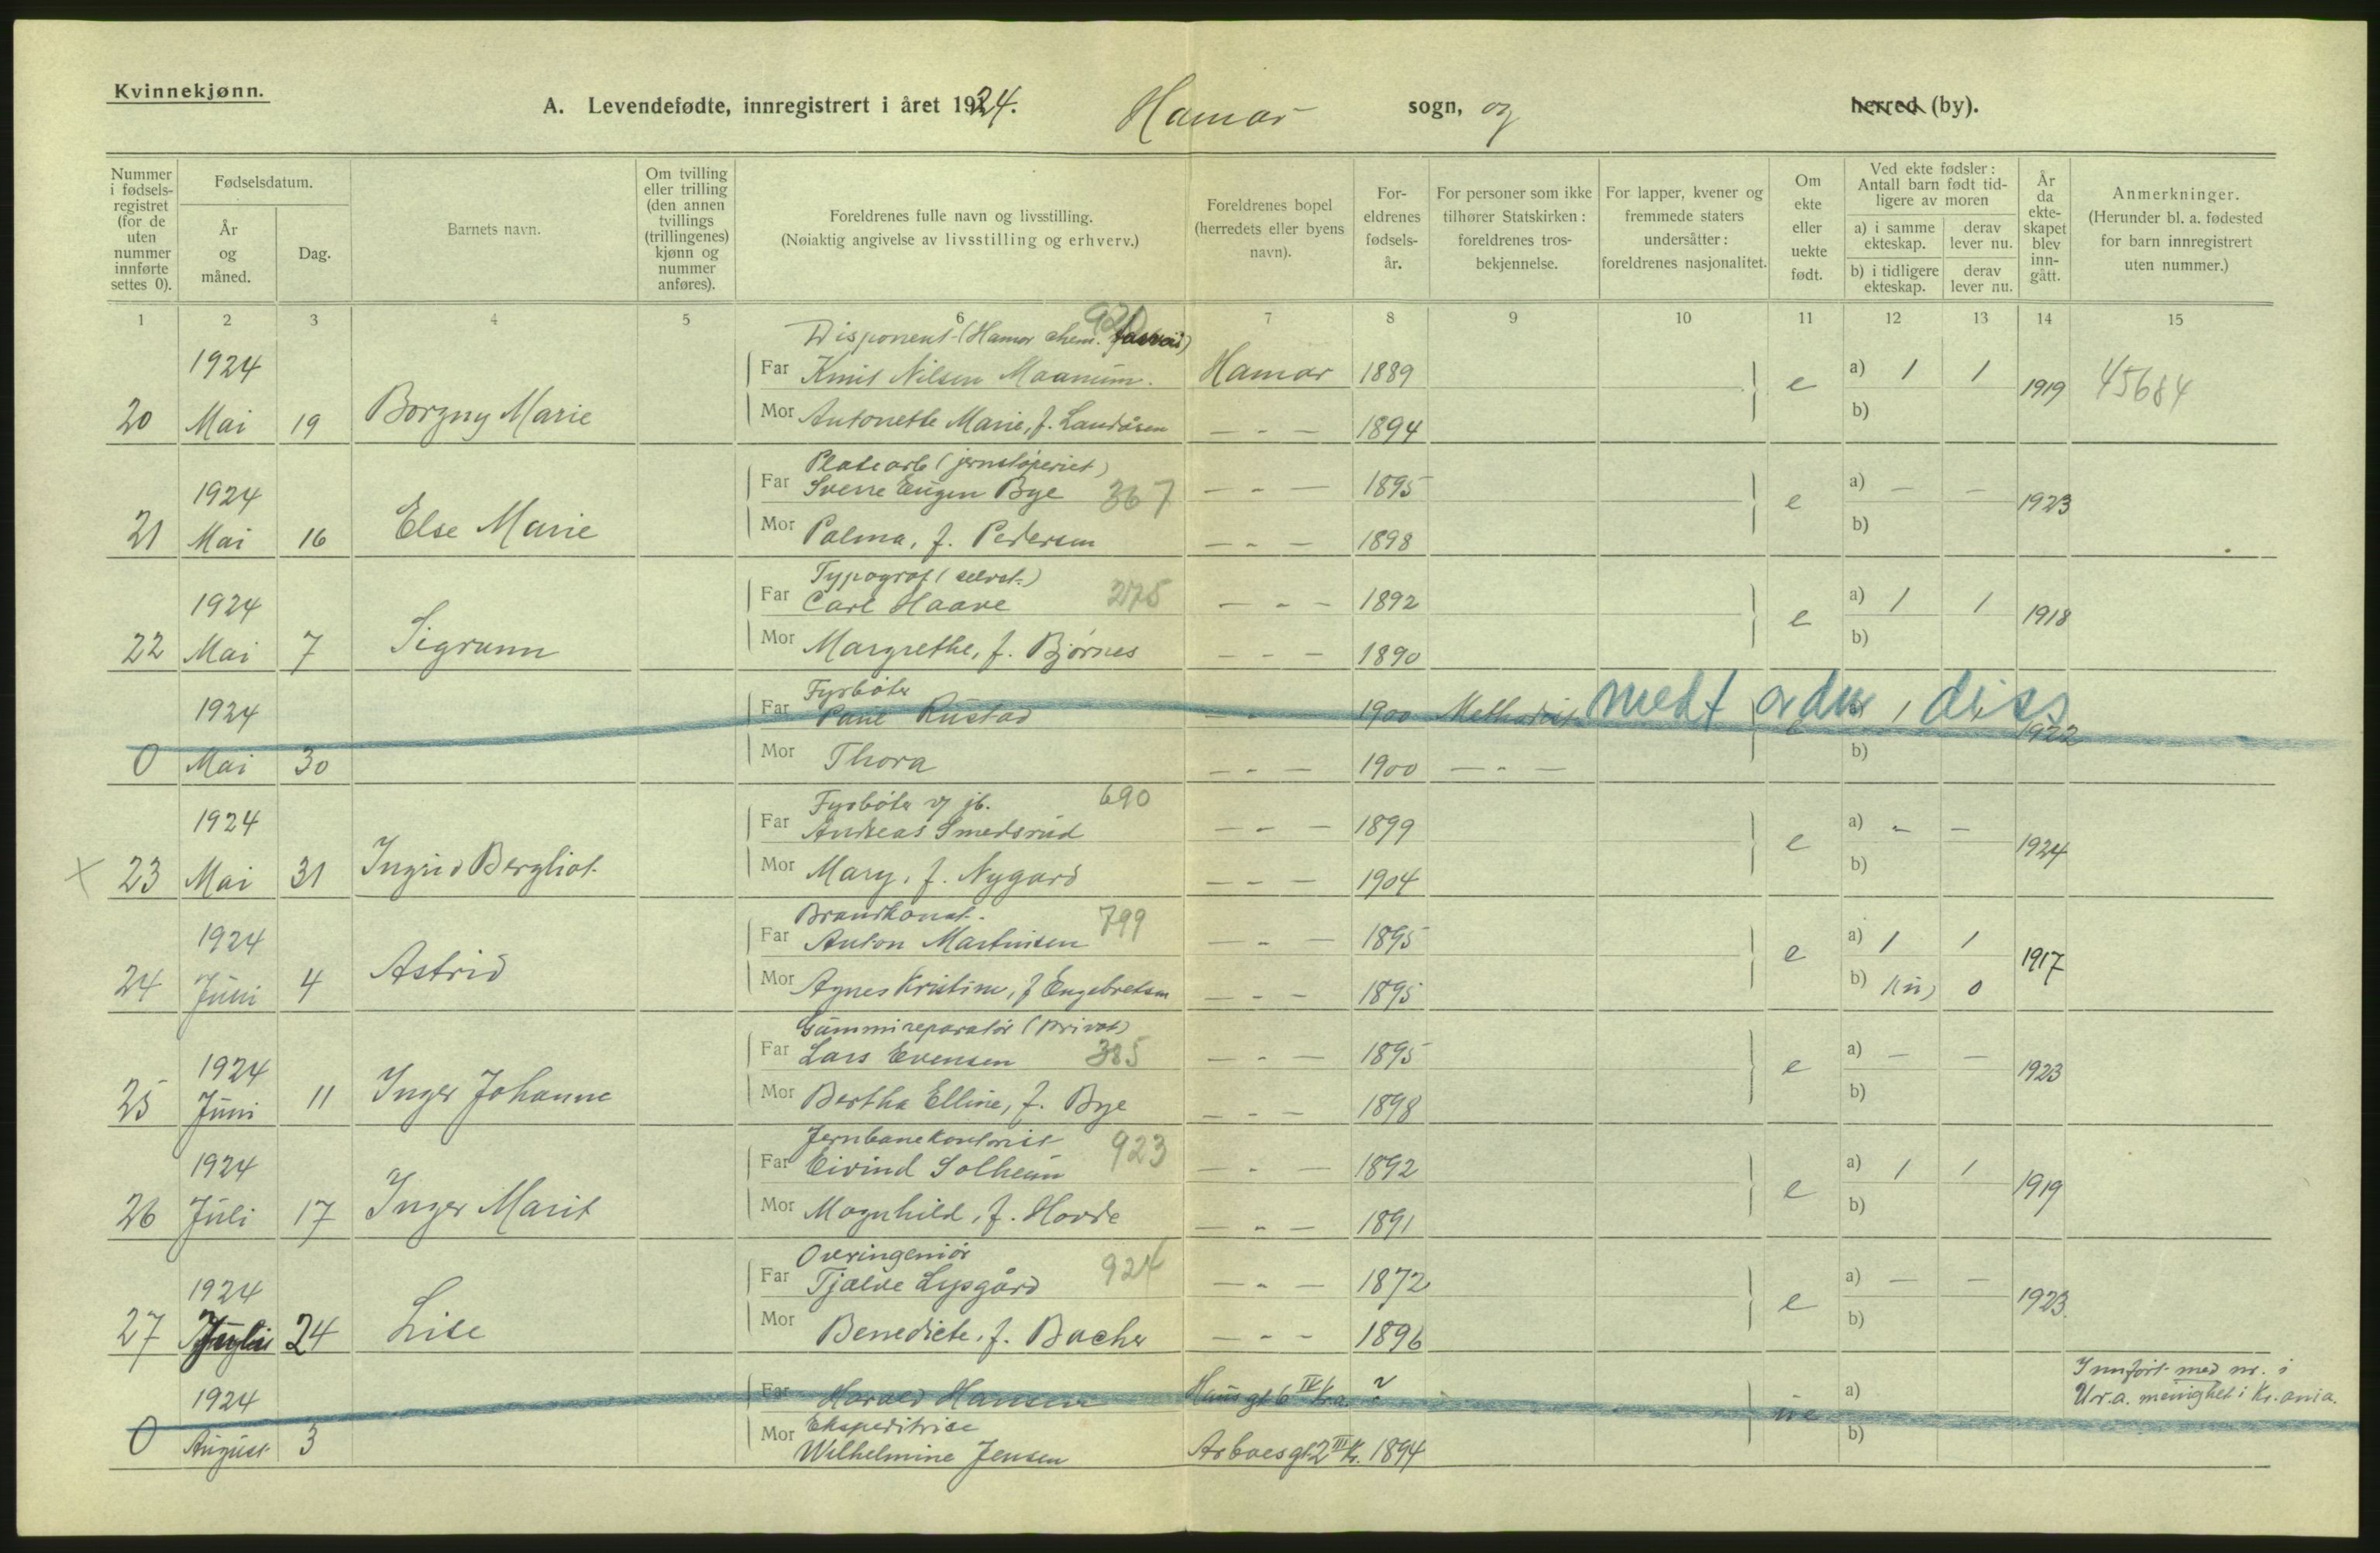 Kvinnekjønn.
A. Levendefødte, innregistrert i året 1924. Hamar sogn, og herred (by).
Nummer i fødsels-registret (for de uten nummer innførte settes 0).
Fødselsdatum.
År og måned.
Dag.
Barnets navn.
Om tvilling eller trilling (den annen tvillings (trillingenes) kjønn og nummer anføres).
Foreldrenes fulle navn og livsstilling.
(Nøiaktig angivelse av livsstilling og erhverv.)
Foreldrenes bopel (herredets eller byens navn).
For-eldrenes fødsels-år.
For personer som ikke tilhører Statskirken: foreldrenes tros-bekjennelse.
For lapper, kvener og fremmede staters undersåtter: foreldrenes nasjonalitet.
Om ekte eller uekte født.
Ved ekte fødsler: Antall barn født tid-ligere av moren
a) i samme ekteskap.
derav lever nu.
b) i tidligere ekteskap.
derav lever nu.
År da ekte-skapet blev inn-gått.
Anmerkninger.
(Herunder bl. a. fødested for barn innregistrert uten nummer.)
1 2 3 4 5 6 7 8 9 10 11 12 13 14 15
Disponent (Hamar chem.
1924 Far Knut Nilsen Maanum. Hamar 1889 e a) 1 1 1919 45684
20 Mai 19 Borgny Marie Mor Antonette Marie, f. Landåsen — " — 1894 b)
Platearb (jernstøperiet)
1924 Far Sverre Eugen Bye 367 — " — 1895 e a) — — 1923
21 Mai 16 Else Marie Mor Palma, f. Pedersen — " — 1898 b)
Typograf (selvst.)
1924 Far Carl Haave 275 — " — 1892 e a) 1 1 1918
22 Mai 7 Sigrunn Mor Margrethe, f. Bjørnes — " — 1890 b)
Fyrbøter
1924 Far Paul Rustad — " — 1900 Methodist 1 1922
0 Mai 30 Mor Thora — " — 1900 — " — b)
Fyrbøter v/ jb. 690
1924 Far Andreas Smedsrud — " — 1899 e a) - — 1924
x 23 Mai 31 Ingrid Bergliot Mor Mary, f. Nygard — " — 1904 b)
Brandkonst. 799
1924 Far Anton Martinsen — " — 1895 e a) 1 1 1917
24 Juni 4 Astrid Mor Agnes Kristine, f Engebretsen — " — 1895 b) 1 0
Gummireparatør (privat)
1924 Far Lars Evensen 385 — " — 1895 e a) — — 1923
25 Juni 11 Inger Johanne Mor Bertha Elline, f. Bye — " — 1898 b)
Jernbanekontorist 923
1924 Far Eivind Solheim — " — 1892 e a) 1 1 1919
26 Juli 17 Inger Marit Mor Magnhild, f. Hovde — " — 1891 b)
Overingeniør 924
1924 Far Tjalve Lysgård — " — 1872 e a) — — 1923
27 Juli 24 Lise Mor Benedicte, f. Bacher — " — 1896 b)
1924 Far Harald Hansen Hausgt 6 IV Kr.a. ? ue a) Innført med nr. i
menighet i Kr.ania.
0 August 3 Mor Ekspeditrise b)
Wilhelmine Jensen 1894